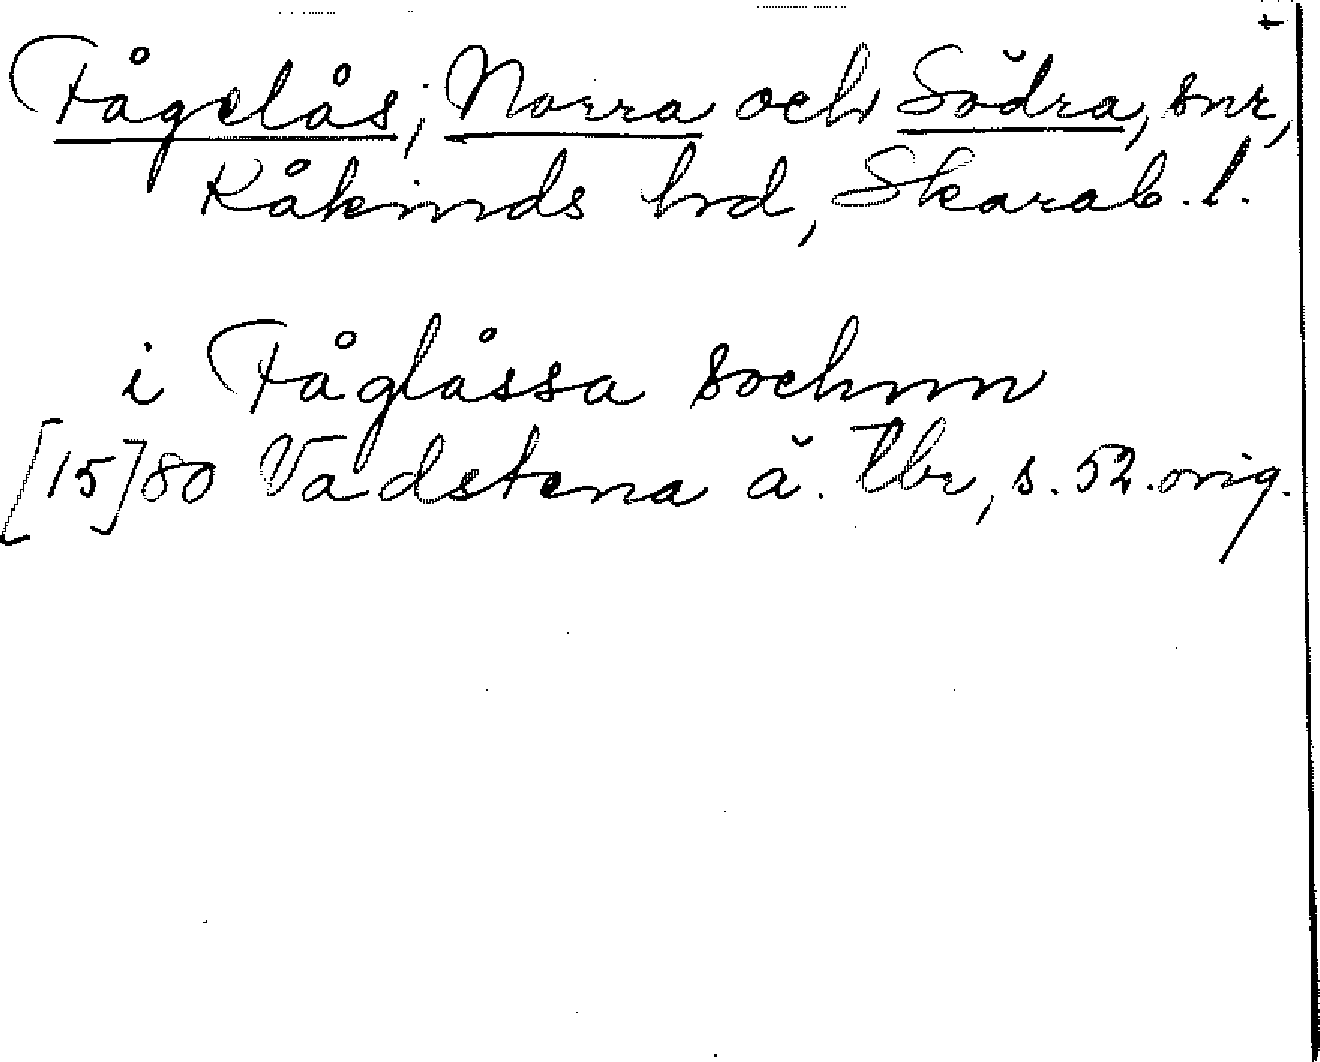 Fågelås, Norra och Södra, snr,
Kåkinds hrd, Skarab. l.
i Fåglåssa sochnn
[15]80 Vadstena ä. tbr, s. 52. orig.